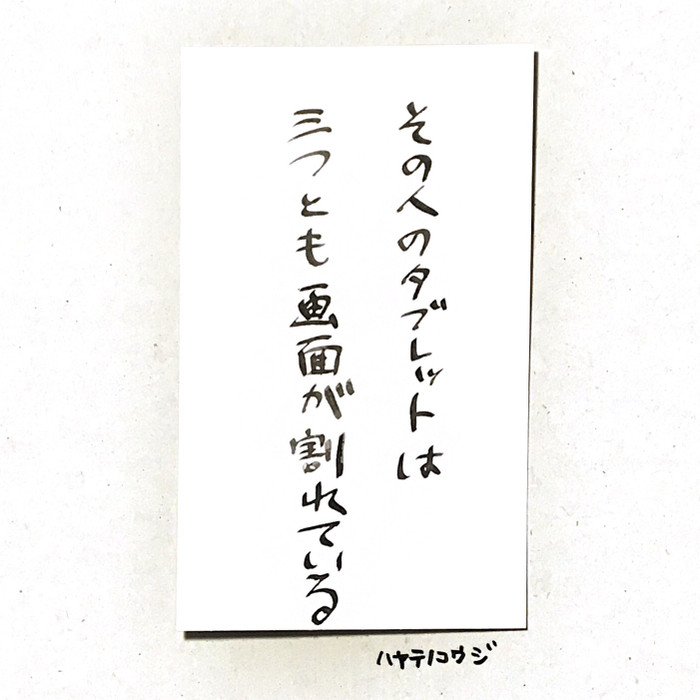 その人のタブレットは
三つとも画面が割れている
ハヤテノコウジ